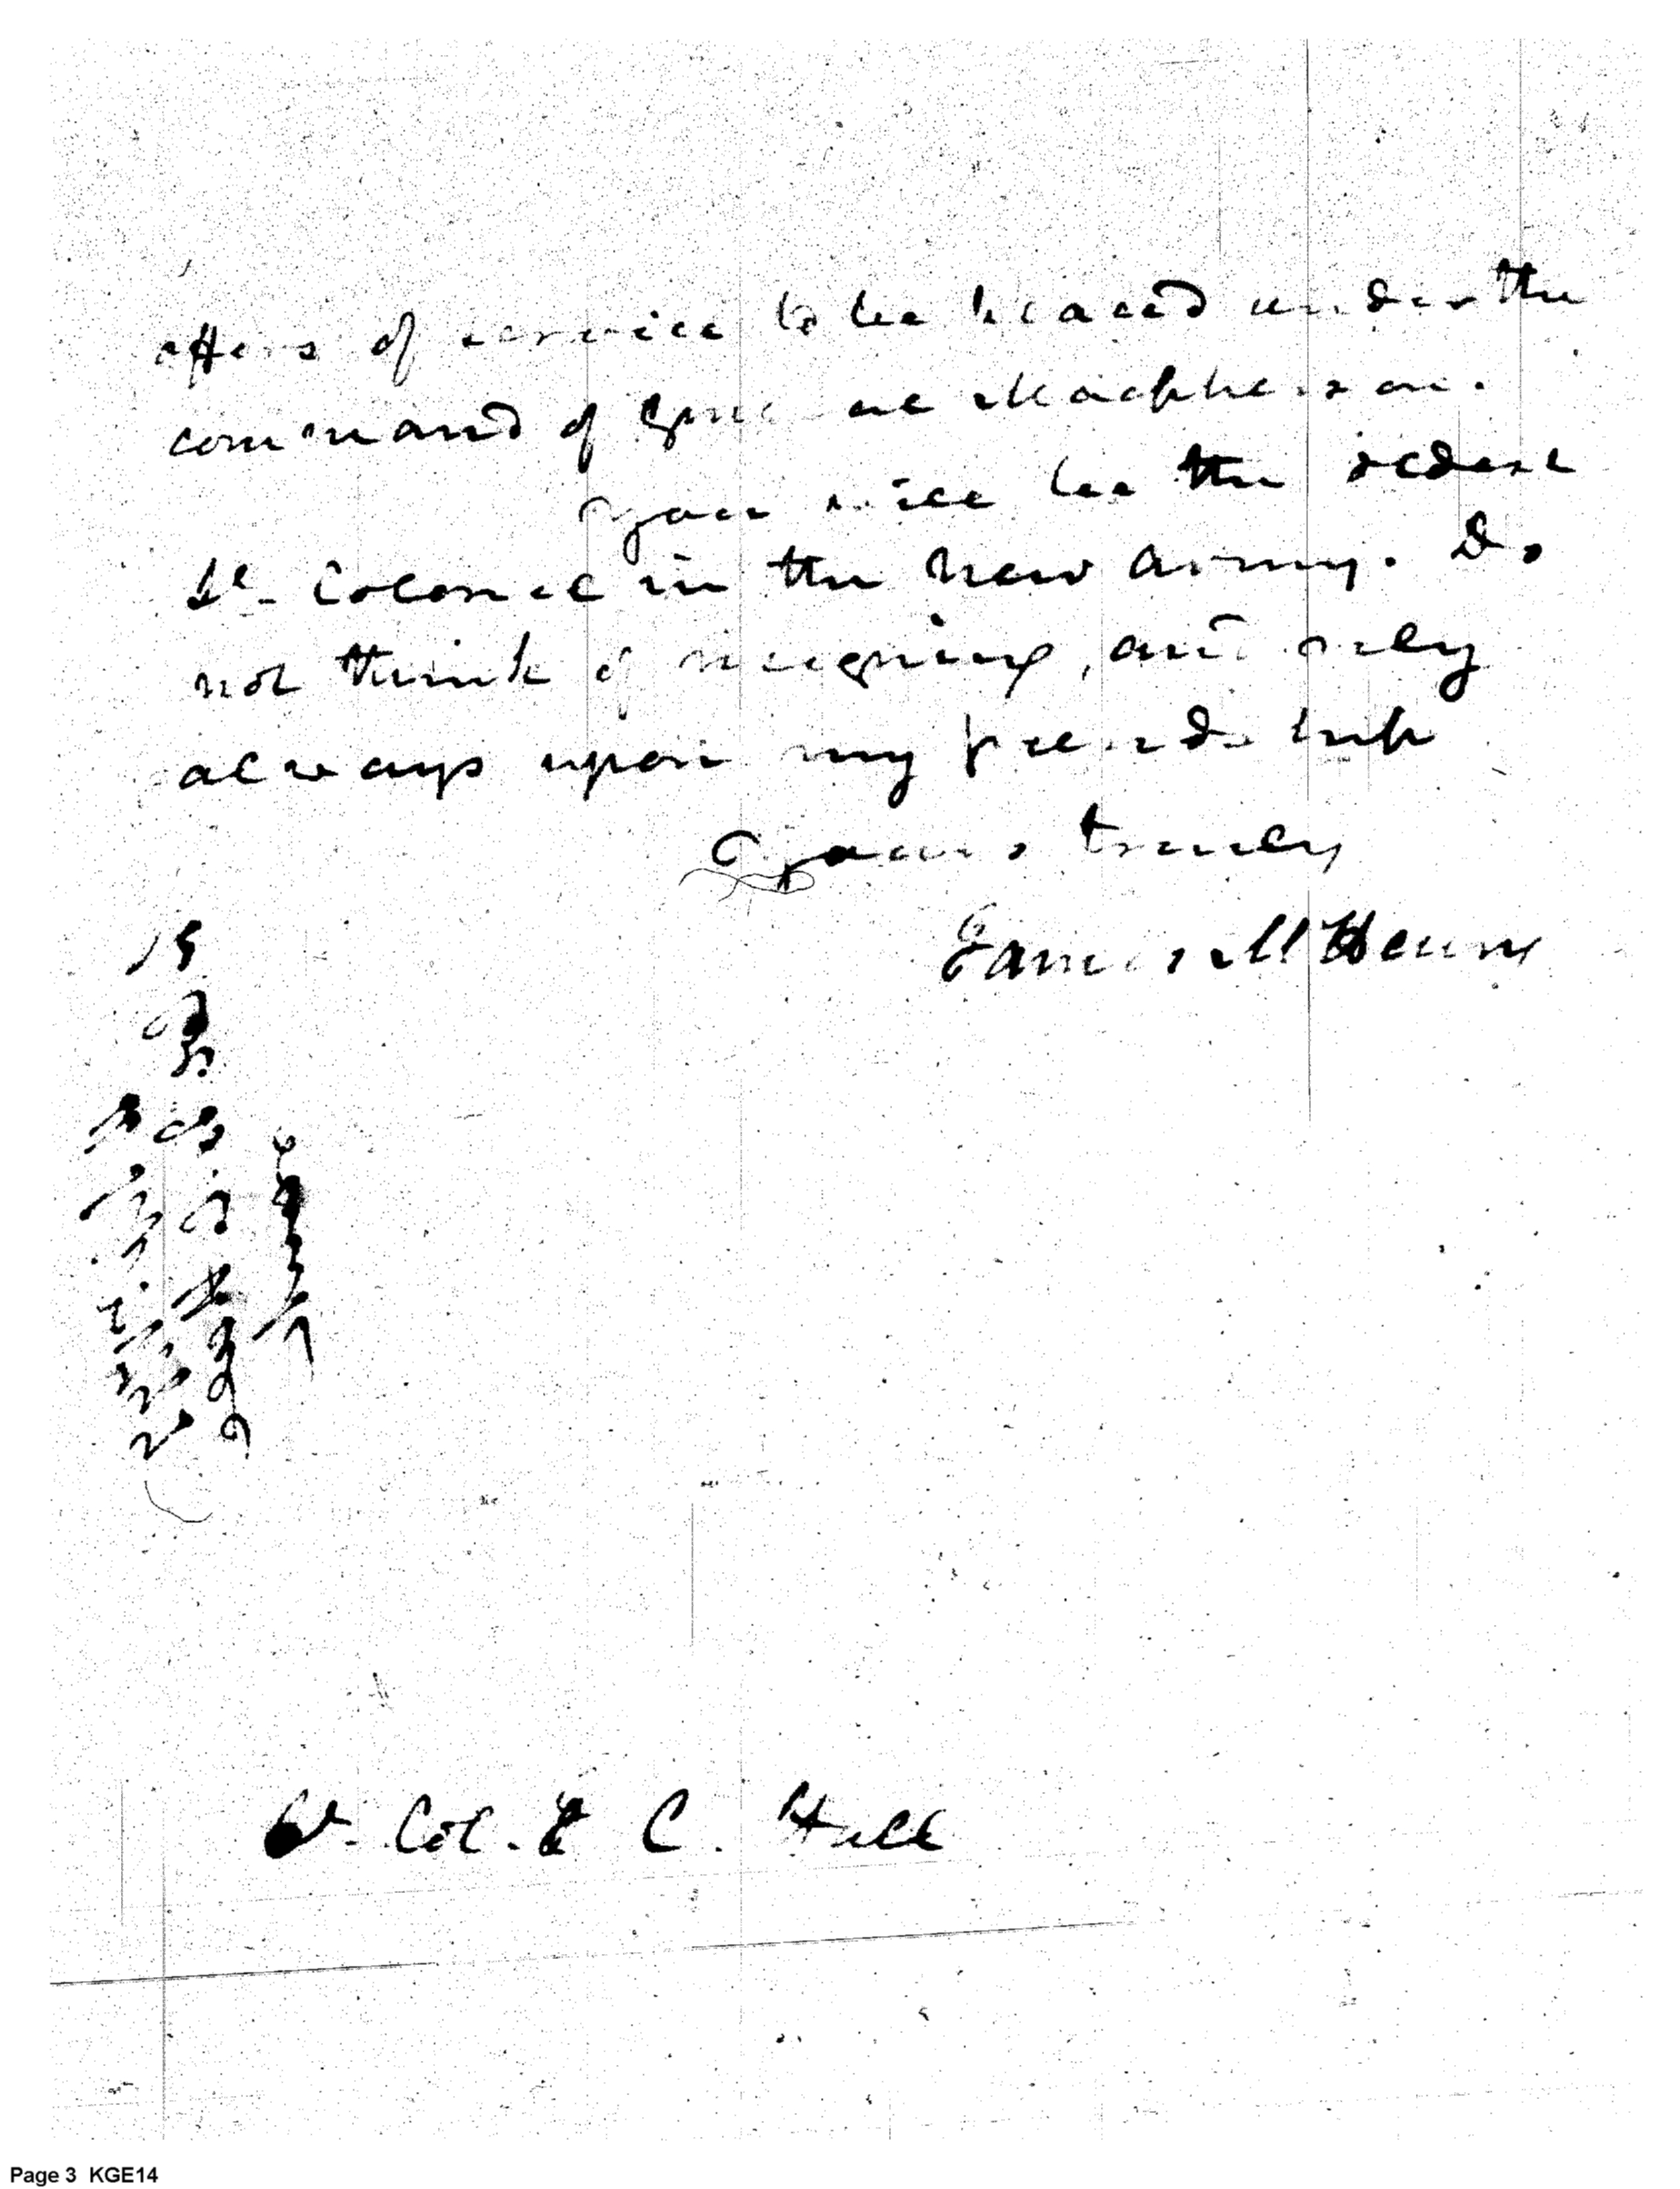 offers of service to be placed under the
command of General Macpherson.
You will be the oldest
Lt. Colonel in the new army. Do
not think of resigning, and rely
always upon my friendship
Yours truly
James McHenry
Lt. Col. D C. Hall
Page 3 KGE14